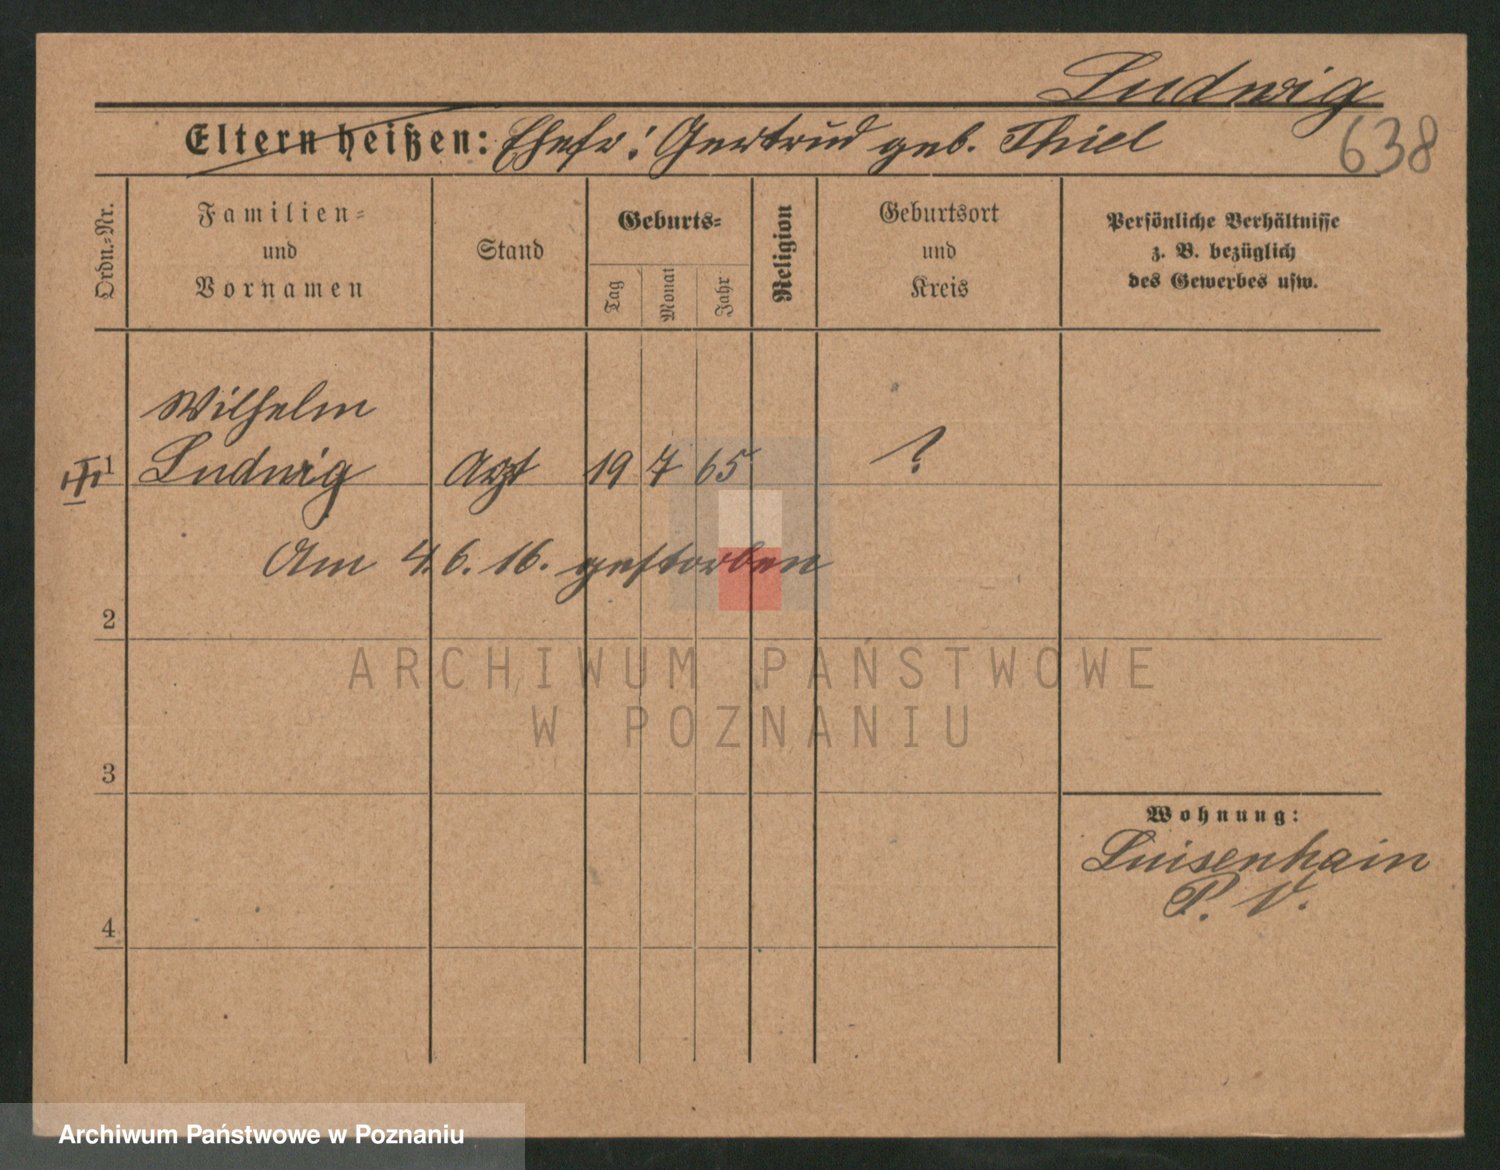 Ludwig
638
Eltern heißen: Ehefr: Gertrud geb. Thiel
Ordn.-Nr.
Familien-
und
Vornamen
Stand
Geburts-
Tag
Monat
Jahr
Religion
Geburtsort
und
Kreis
Persönliche Verhältnisse
z. B. bezüglich
des Gewerbes usw.
Wilhelm
III 1 Ludwig Arzt 19 7 65 ?
Am 4.6.16. gestorben
2
ARCHIWUM PAŃSTWOWE
W POZNANIU
3
Wohnung:
Luisenhain
P. V.
4
Archiwum Państwowe w Poznaniu